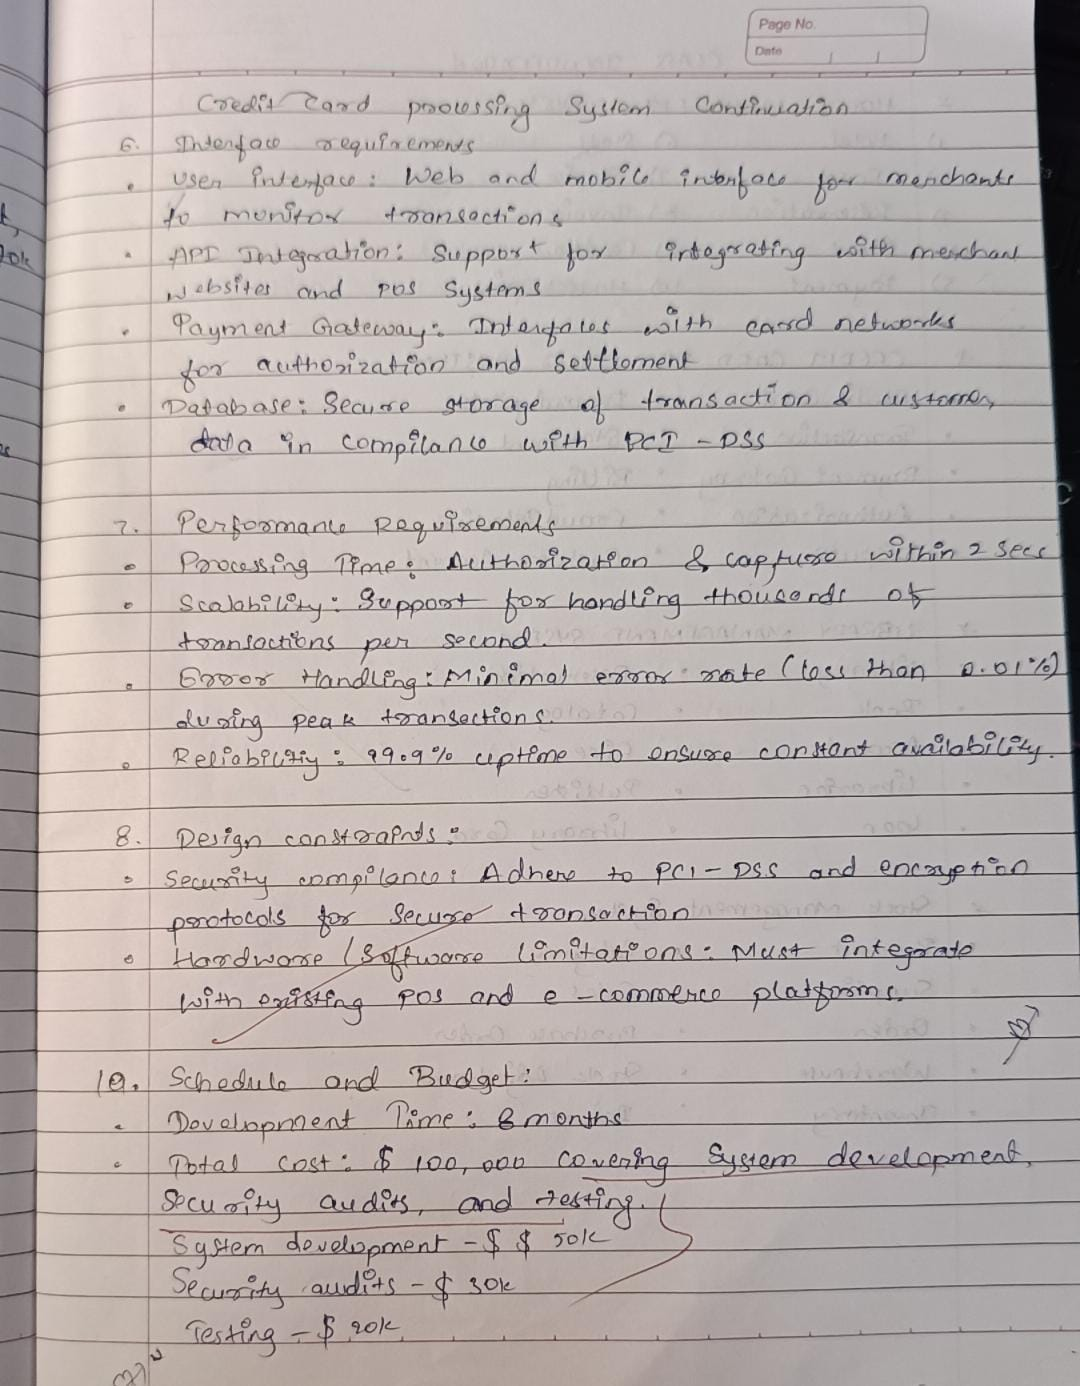 Page No.
Date
Credit Card processing System Continuation
6. Interface requirements
• User interface: Web and mobile interface for merchants
to monitor transactions
• API Integration: Support for integrating with merchant
websites and POS Systems
• Payment Gateway: Interfaces with card networks
for authorization and settlement
• Database: Secure storage of transaction & customer
data in compilance with PCI-DSS
7. Performance Requirements
• Processing Time: Authorization & capture within 2 secs
• Scalability: Support for handling thousands of
transactions per second.
• Error Handling: Minimal error rate (less than 0.01%)
during peak transections.
• Reliability: 99.9% uptime to ensure constant availability.
8. Design constraints:
• Security compilance: Adhere to PCI-DSS and encryption
protocols for Secure transaction
• Hardware / Software limitations: Must integrate
with existing POS and e-commerce platforms.
10. Schedule and Budget:
• Development Time: 8 months
• Total cost: $ 100,000 covering System development,
Security audits, and testing.
System development - $ $ 50k
Security audits - $ 30k
Testing - $ 20k